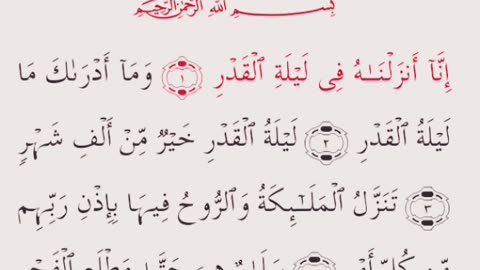 بِسْمِ اللَّهِ الرَّحْمَٰنِ الرَّحِيمِ
إِنَّآ أَنزَلْنَٰهُ فِى لَيْلَةِ ٱلْقَدْرِ ١ وَمَآ أَدْرَىٰكَ مَا
لَيْلَةُ ٱلْقَدْرِ ٢ لَيْلَةُ ٱلْقَدْرِ خَيْرٌ مِّنْ أَلْفِ شَهْرٍ
٣ تَنَزَّلُ ٱلْمَلَٰٓئِكَةُ وَٱلرُّوحُ فِيهَا بِإِذْنِ رَبِّهِم
مِّن كُلِّ أَمْرٍ سَلَٰمٌ هِىَ حَتَّىٰ مَطْلَعِ ٱلْفَجْرِ